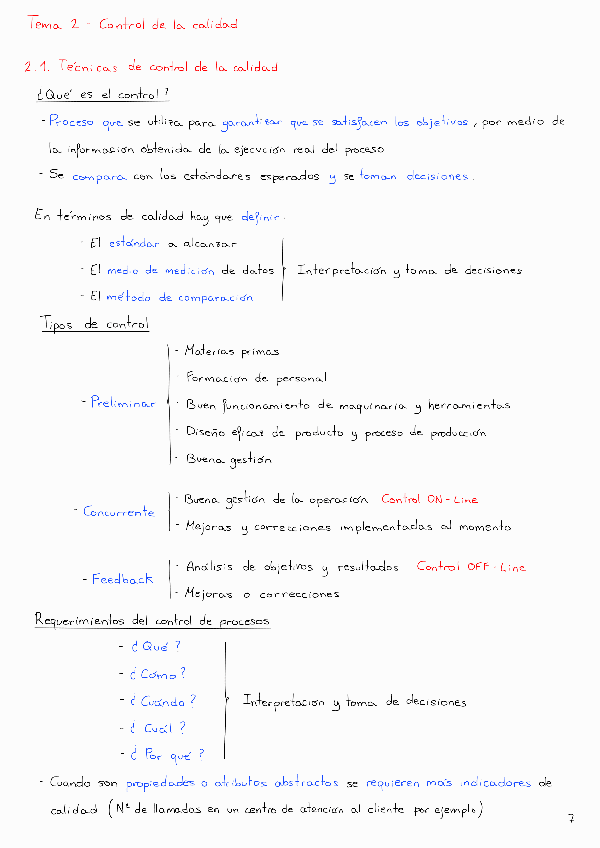 Tema 2 - Control de la calidad
2.1. Técnicas de control de la calidad
¿Qué es el control?
- Proceso que se utiliza para garantizar que se satisfacen los objetivos, por medio de
la información obtenida de la ejecución real del proceso
- Se compara con los estándares esperados y se toman decisiones.
En términos de calidad hay que definir:
- El estándar a alcanzar
- El medio de medición de datos
Interpretación y toma de decisiones
- El método de comparación
Tipos de control
- Preliminar
- Materias primas
- Formación de personal
- Buen funcionamiento de maquinaria y herramientas
- Diseño eficaz de producto y proceso de producción
- Buena gestión
- Concurrente
- Buena gestión de la operación Control ON-Line
- Mejoras y correcciones implementadas al momento
- Feedback
- Análisis de objetivos y resultados Control OFF-Line
- Mejoras o correcciones
Requerimientos del control de procesos
- ¿Qué?
- ¿Cómo?
- ¿Cuándo?
Interpretación y toma de decisiones
- ¿Cuál?
- ¿Por qué?
- Cuando son propiedades o atributos abstractos se requieren más indicadores de
calidad (Nº de llamadas en un centro de atención al cliente por ejemplo)
7